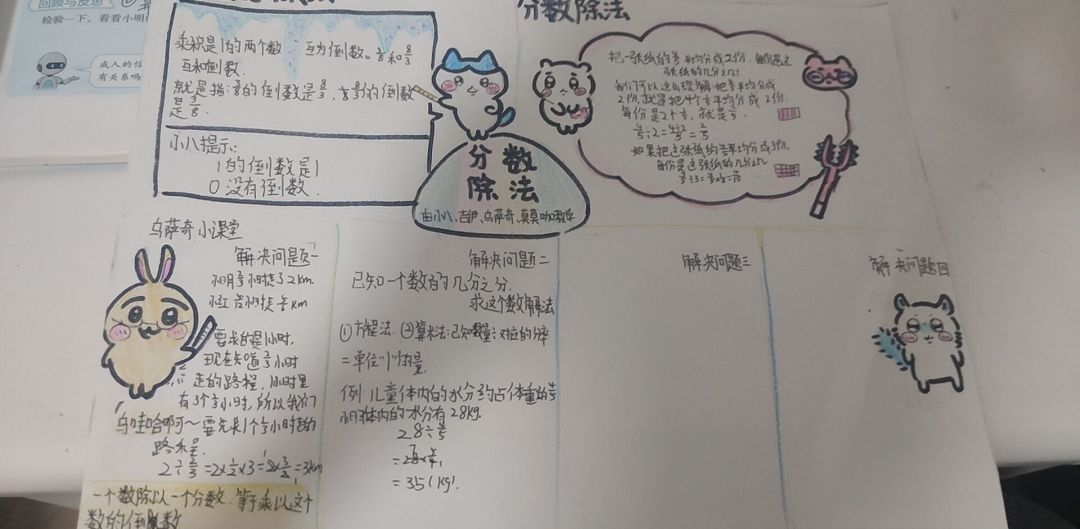 回顾与反思
检验一下，看看小明
成人的信
有关系吗
乘积是1的两个数 互为倒数。3/8和8/3
互和倒数.
就是指：3/8的倒数是8/3，8/3的倒数
是3/8.
小八提示：
1的倒数是1
0没有倒数.
分数
除法
由小八、吉伊、乌萨奇、莫莫咖教学
分数除法
把一张纸的4/5平均分成2份，每份是这
张纸的几分之几
我们可以这么理解，把4/5平均分成
2份，就是把4个1/5平均分成2份.
每份是2个1/5，就是2/5.
4/5÷2=4÷2/5=2/5
如果把这张纸的4/5平均分成3份，
每份是这张纸的几分之几
乌萨奇小课堂
解决问题一
小明2/3小时走了2km.
小红
要求的是1小时，
现在知道2/3小时
走的路程，1小时里
有3个1/3小时，所以我们
乌哇哈呀~要先求1个1/3小时走的
路程.
2÷2/3=2×1/2×3=2×3/2=3km
一个数除以一个分数，等于乘以这个
数的倒数
解决问题二
已知一个数的几分之几.
求这个数解法
①方程法. ②算术法：已知数量÷对应的分率
=单位"1"的量.
例：儿童体内的水分约占体重的4/5
小明体内的水分有28kg.
28÷4/5
=28×5/4
=35(kg).
解决问题三
解决问题四